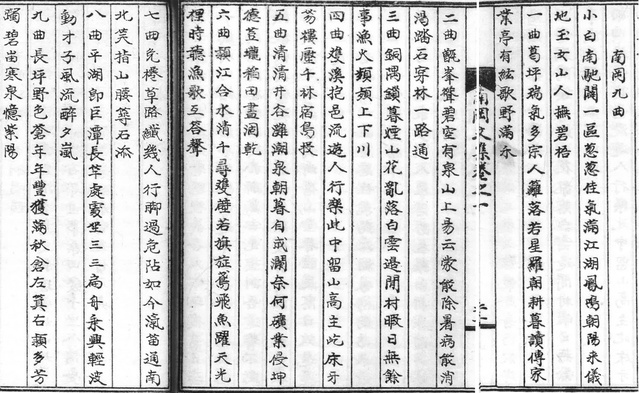 南岡九曲
小白南馳開一區葱葱佳氣滿江湖鳳鳴朝陽來儀
地玉女山人撫碧梧
一曲葛坪瑞氣多宗人羅落若星羅朝耕暮讀傳家
業亭有絃歌野滿禾
南岡文集卷之一
二曲甑峯聳碧空有泉山上易云蒙能除暑病能消
渴踏石穿林一路通
三曲銅隅鎖暮煙山花亂落白雲邊閒村暇日無餘
事漁火頻頻上下川
四曲雙溪抱邑流遊人行樂此中留山高主屹床牙
笏樓壓千林宿鳥投
五曲清清開谷雞潮泉朝暮自成瀾奈何礦業侵坤
德苽壠稻田盡涸乾
六曲頴江合水清千尋雙碧若旗旌鳶飛魚躍天光
裡時聽漁歌互答聲
七曲先棲草路纖幾人行脚過危阽如今瀛笛通南
北笑指山腰舊石添
八曲平湖卽臣潭長竿處處坐三三扁舟乘興輕波
動才子風流醉夕嵐
九曲長坪野色蒼年年豊穫滿秋倉左箕右頴多芳
躅碧出寒泉憶紫陽